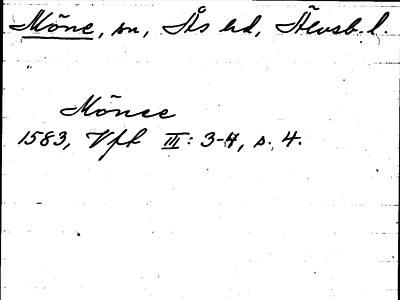 Möne, sn, Ås hd, Älvsb. l.
Mönee
1583, Vfk III: 3-4, s. 4.